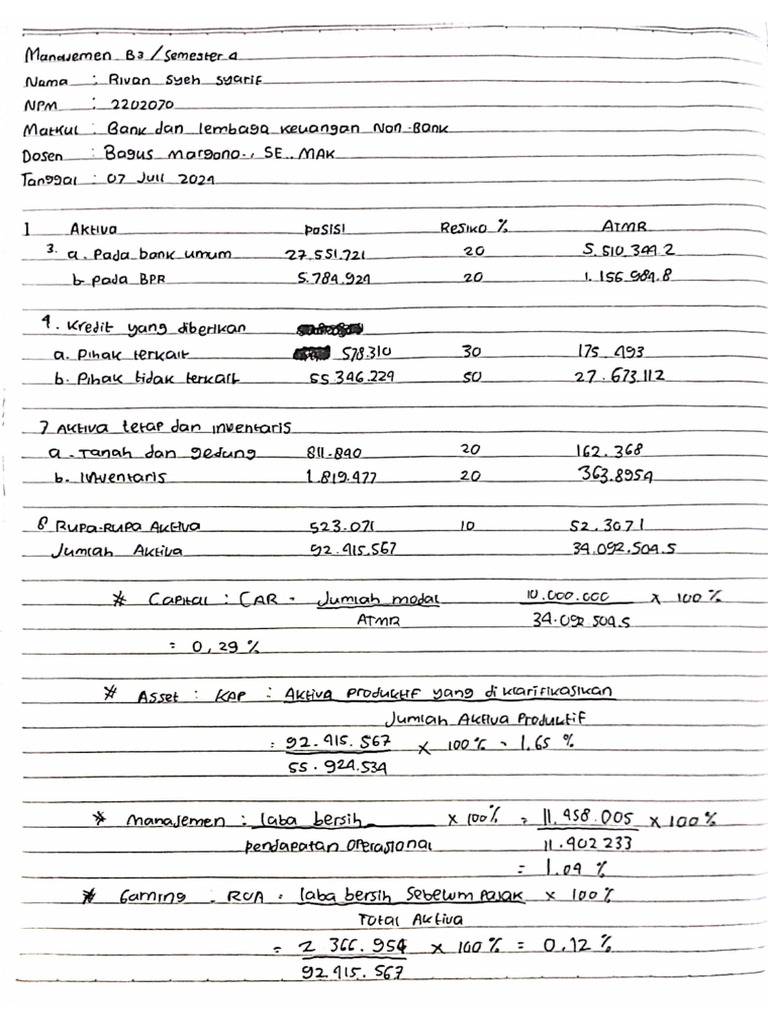 Manajemen B3 / Semester 4
Nama : Rivan Syeh Syarif
NPM : 2202070
Matkul : Bank dan lembaga keuangan Non-Bank
Dosen : Bagus Margono., SE., MAK
Tanggal : 07 Juli 2024
1 Aktiva POSISI Resiko % ATMR
3. a. Pada bank umum 27.551.721 20 5.510.344.2
b. pada BPR 5.784.924 20 1.156.984.8
4. Kredit yang diberikan
a. Pihak terkait 578.310 30 175.493
b. Pihak tidak terkait 55.346.224 50 27.673.112
7 Aktiva tetap dan inventaris
a. Tanah dan gedung 811.840 20 162.368
b. Inventaris 1.819.477 20 363.8954
8 Rupa-Rupa Aktiva 523.071 10 52.3071
Jumlah Aktiva 92.415.567 34.092.504.5
* Capital : CAR = Jumlah modal 10.000.000 x 100 %
ATMR 34.092 504.5
= 0,29 %
* Asset : KAP : Aktiva Produktif yang di klarifikasikan
Jumlah Aktiva Produktif
= 92.415.567 x 100 % = 1.65 %
55.924.534
* Manajemen : laba bersih x 100 % = 11.458.005 x 100 %
pendapatan Operasional 11.402 233
= 1.04 %
* Gaming : ROA = laba bersih Sebelum Pajak x 100 %
Total Aktiva
= 2 366.954 x 100 % = 0,12 %
92.415.567